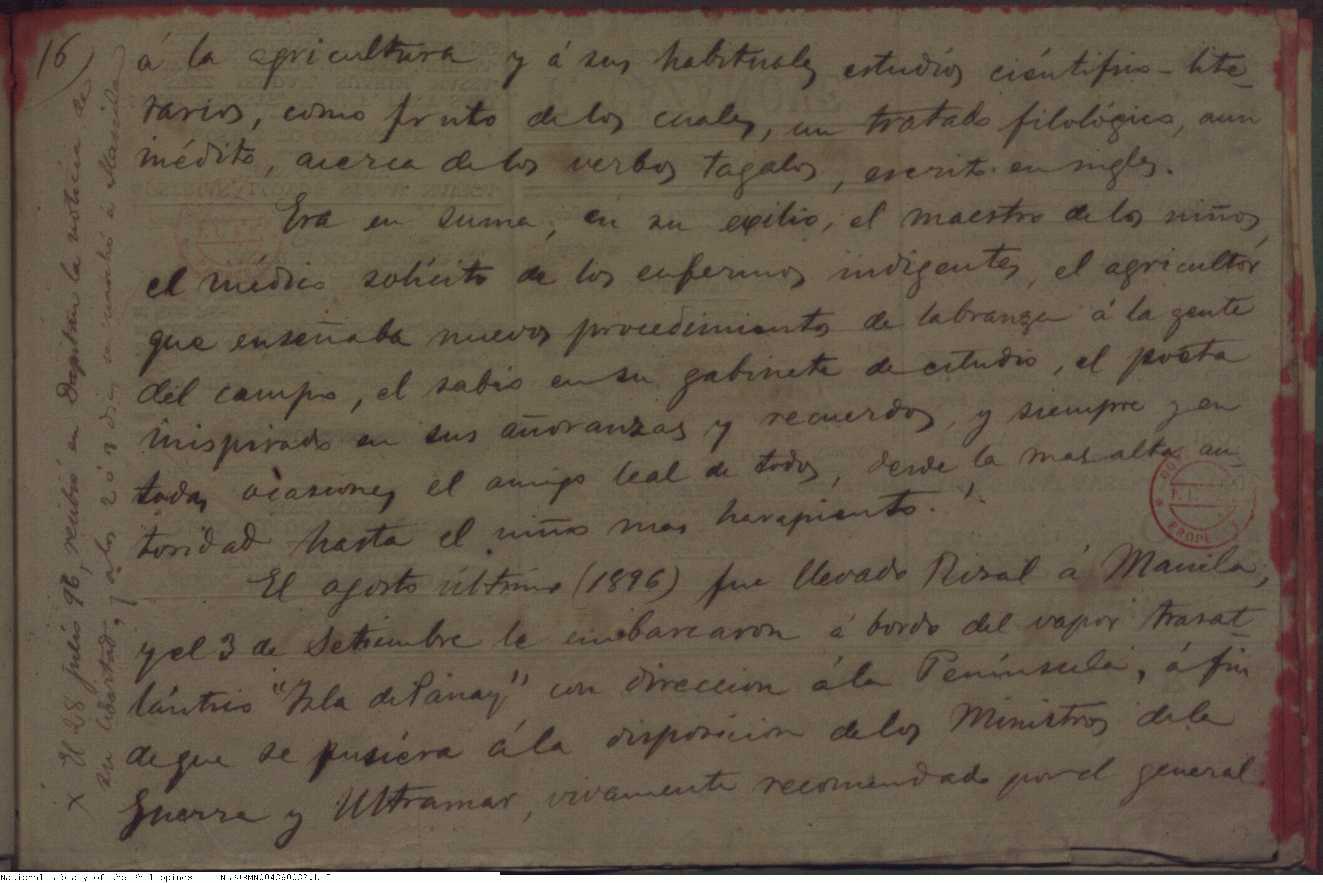 16)
á la agricultura y á sus habituales estudios científico-lite-
rarios, como fruto de los cuales, un tratado filológico, aun
inédito, acerca de los verbos tagalos, escrito en ingles.
Era en suma, en su exilio, el maestro de los niños,
el médico solícito de los enfermos indigentes, el agricultor
que enseñaba nuevos procedimientos de labranza á la gente
del campo, el sabio en su gabinete de estudio, el poeta
inspirado en sus añoranzas y recuerdos, y siempre y en
todas ocasiones el amigo leal de todos, desde la mas alta au-
toridad hasta el niño mas harapiento.
El agosto último (1896) fue llevado Rizal á Manila,
y el 3 de Setiembre le embarcaron á bordo del vapor trasat-
lántico "Isla de Panay" con direccion á la Península, á fin
de que se pusiera á la disposicion de los Ministros de la
Guerra y Ultramar, vivamente recomendado por el general
x El 28 julio 96, recibió en Dapitan la noticia de
su libertad, y a los 2 ó 3 dias se marchó á Manila)
National Library of the Philippines